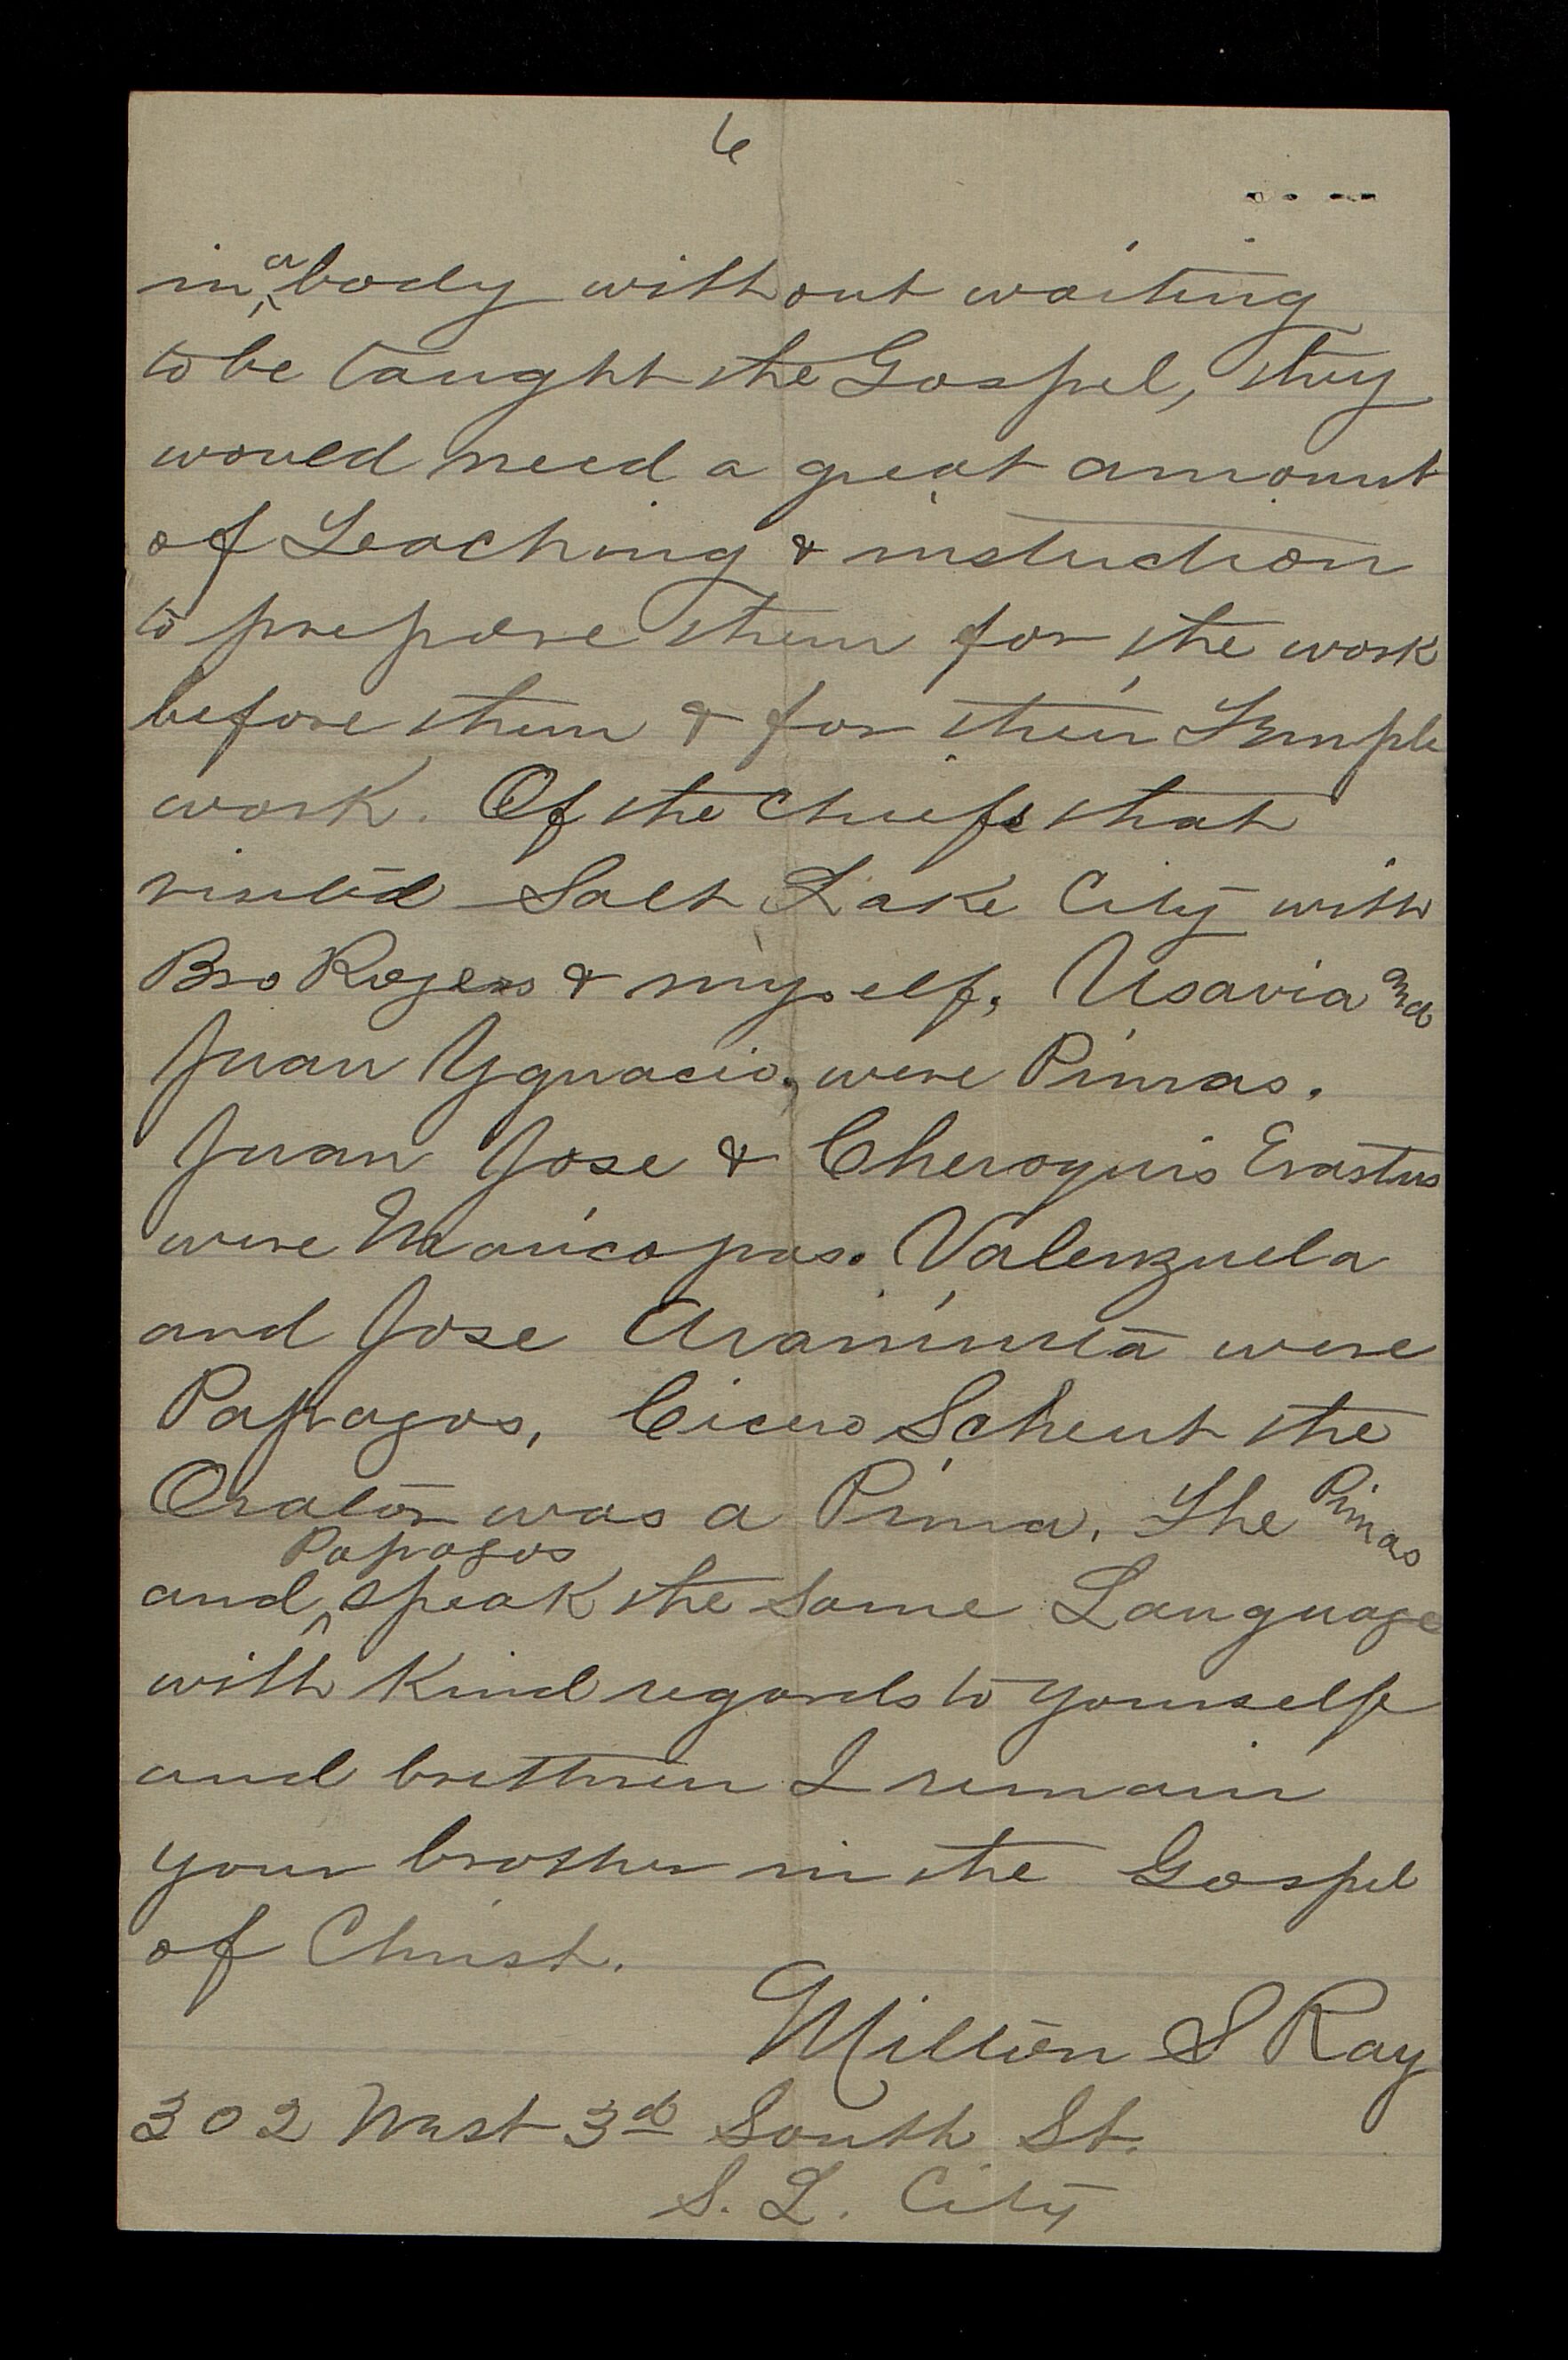 6
in a body without waiting
to be taught the Gospel, they
would need a great amount
of Teaching & instruction
to prepare them for the work
before them & for their Temple
work. Of the Chiefs that
visited Salt Lake City with
Bro Rogers & myself. Usavia and
Juan Ygnacio, were Pimas.
Juan Jose & Cheroquis Erastus
were Maricopas. Valenzuela
and Jose were
Papagos, Cicero Scheut the
Orator was a Pima. The Pimas
and Papagos speak the same Language
with Kind regards to yourself
and brethren I remain
your brother in the Gospel
of Christ.
Milton S Ray
302 West 3d South St.
S. L. City